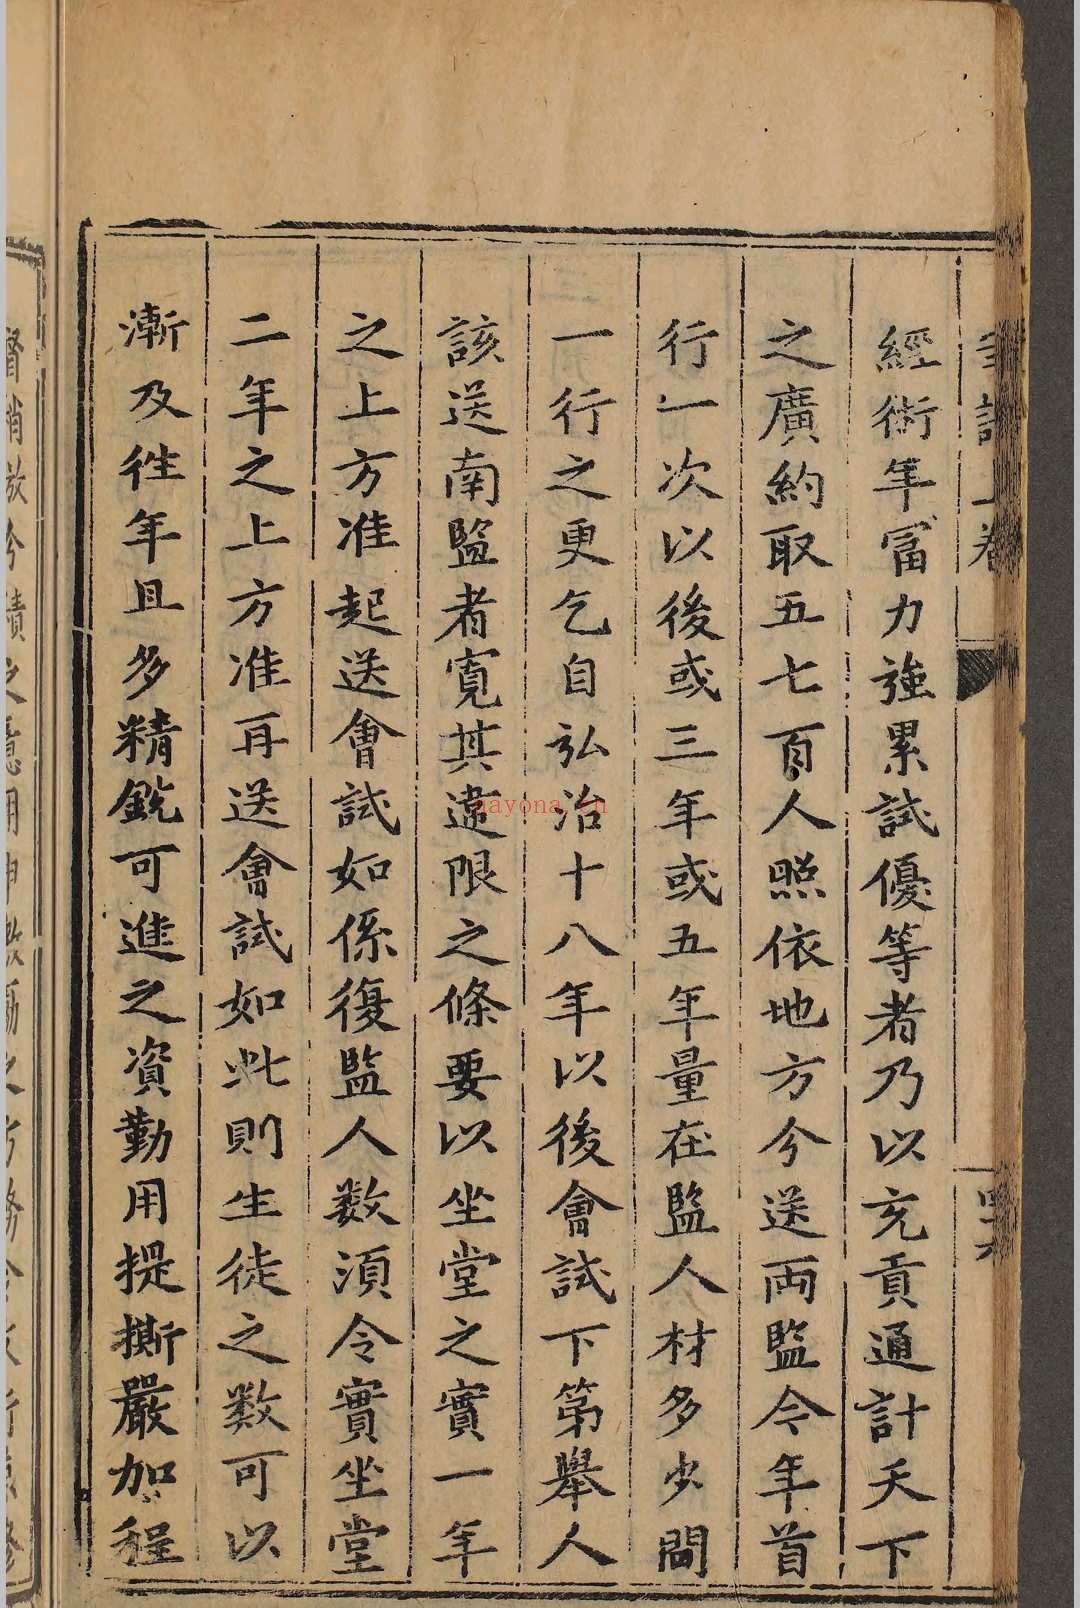 經術年富力強累試優等者乃以充貢通計天下
之廣約取五七百人照依地方分送两監今年首
行一次以後或三年或五年量在監人材多少間
一行之更乞自弘治十八年以後會試下第舉人
該送南監者寬其違限之條要以坐堂之實一年
之上方准起送會試如係復監人数須令實坐堂
二年之上方准再送會試如此則生徒之数可以
漸及徃年且多精銳可進之資勤用提撕嚴加程
nayona.cn